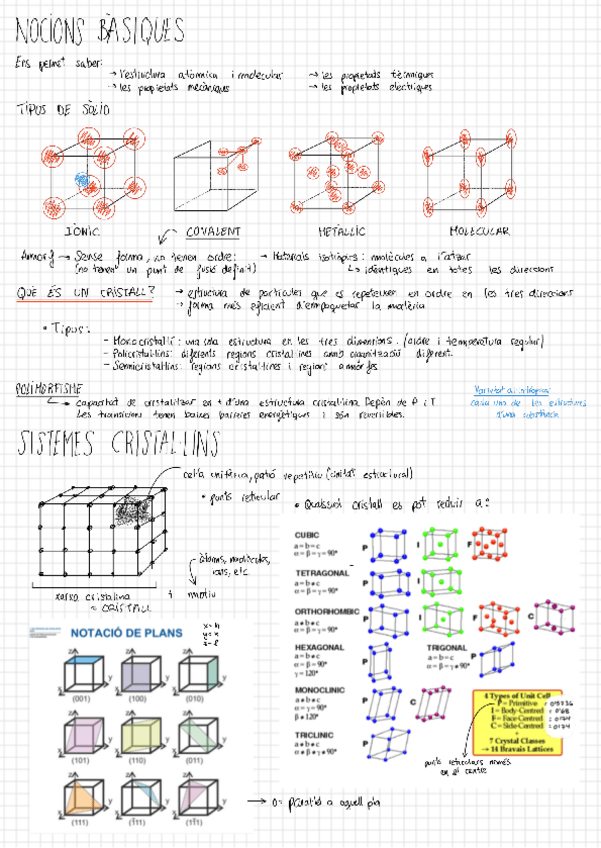 NOCIONS BÀSIQUES
Ens permet saber:
→ l'estructura atòmica i molecular → les propietats tèrmiques
→ les propietats mecàniques → les propietats elèctriques
TIPUS DE SÒLID
IÒNIC COVALENT METÀL·LIC MOLECULAR
Amorf → Sense forma, no tenen ordre: → Materials isotròpics: molècules a l'atzar
(no tenen un punt de fusió definit) ↳ idèntiques en totes les direccions
QUÈ ÉS UN CRISTALL? → estructura de partícules que es repeteixen en ordre en les tres direccions
→ forma més eficient d'empaquetar la matèria
• Tipus:
- Monocristal·lí: una sola estructura en les tres dimensions. (ordre i temperatura regular)
- Policristal·lins: diferents regions cristal·lines amb organització diferent.
- Semicristal·lins: regions cristal·lines i regions amorfes
POLIMORFISME
↳ capacitat de cristal·litzar en + d'una estructura cristal·lina. Depèn de P i T
Les transicions tenen baixes barreres energètiques i són reversibles.
cada una de les estructures
d'una substància
SISTEMES CRISTAL·LINS
cel·la unitària, patró repetitiu (unitat estructural)
• punts reticular • Qualsevol cristall es pot reduir a:
àtoms, molècules,
ions, etc
xarxa cristalina + motiu
= CRISTALL
NOTACIÓ DE PLANS
(001) (100) (010)
(101) (110) (011)
(111) (1̄11) (11̄1)
→ 0 = Paral·lel a aquell pla
CUBIC
a = b = c
α = β = γ = 90°
P I F
TETRAGONAL
a = b ≠ c
α = β = γ = 90°
P I
ORTHORHOMBIC
a ≠ b ≠ c
α = β = γ = 90°
P I F C
HEXAGONAL
a = b ≠ c
α = β = 90°
γ = 120°
P
TRIGONAL
a = b = c
α = β = γ ≠ 90°
P
MONOCLINIC
a ≠ b ≠ c
α = γ = 90°
β ≠ 120°
P C
TRICLINIC
a ≠ b ≠ c
α ≠ β ≠ γ ≠ 90°
P
4 Types of Unit Cell
P = Primitive
I = Body-Centred
F = Face-Centred
C = Side-Centred
+
7 Crystal Classes
→ 14 Bravais Lattices
punts reticulars només
en el centre